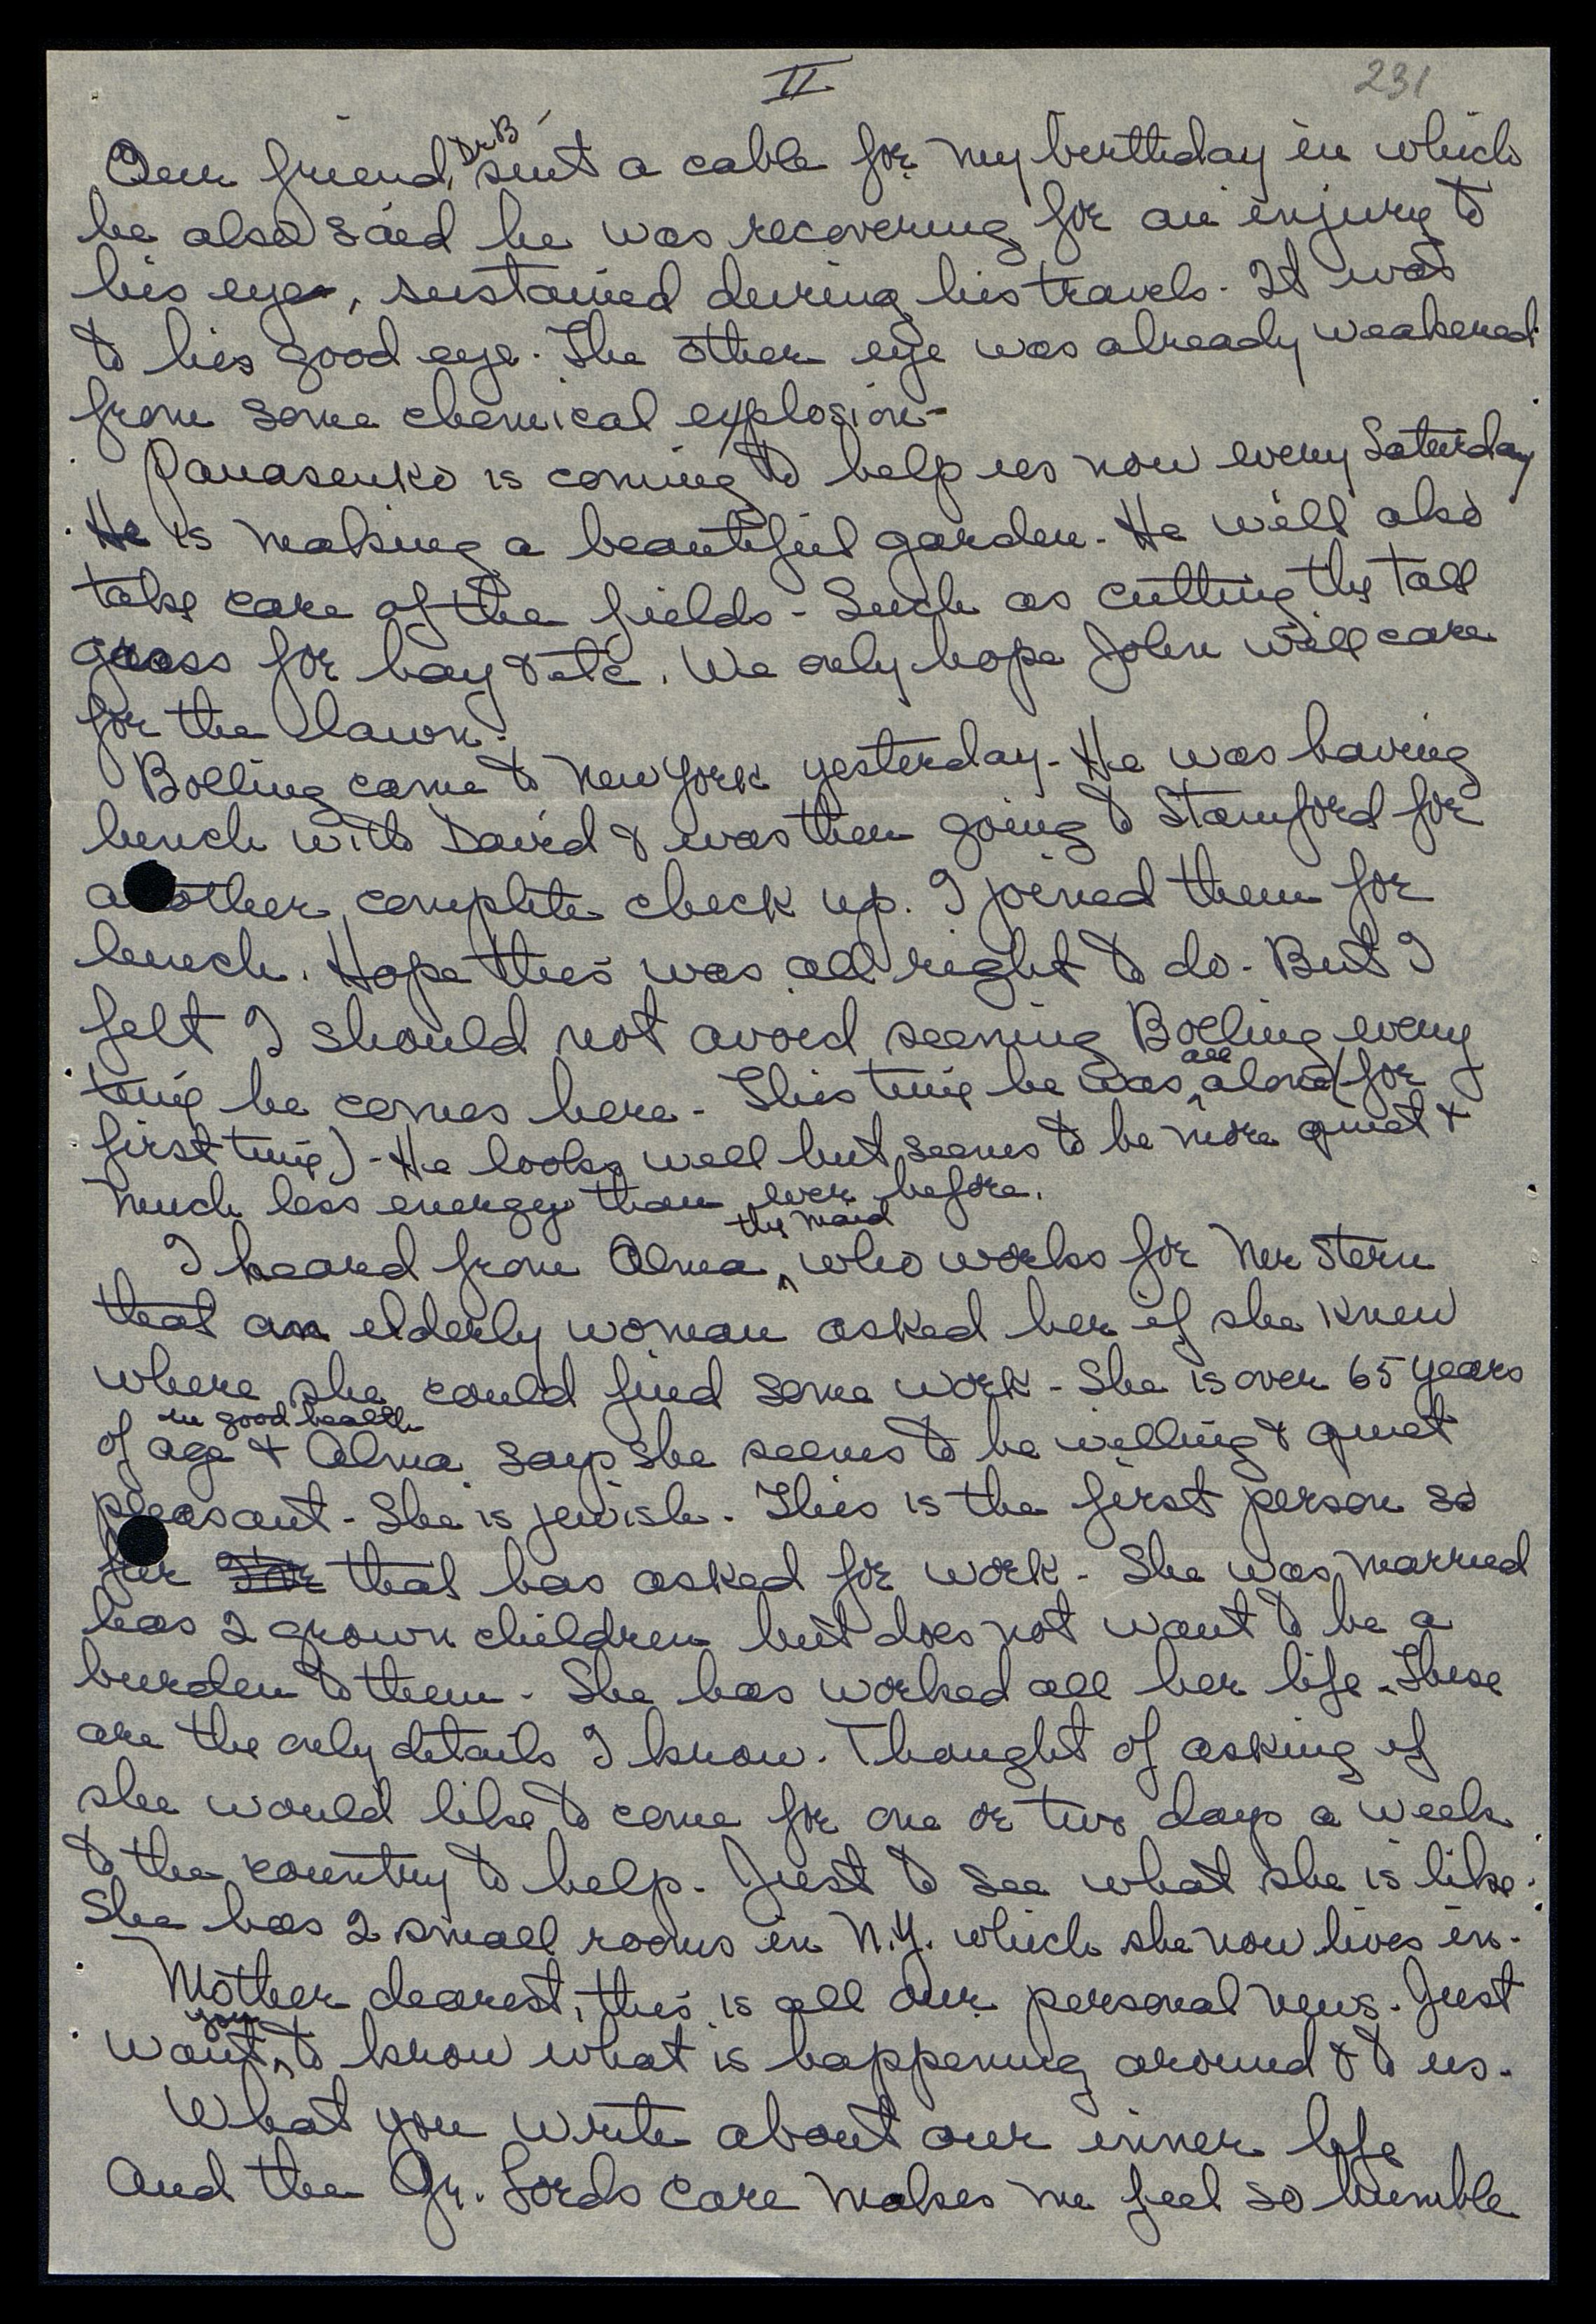 II
231
Our friend, Dr B sent a cable for my birthday in which
he also said he was recovering for an injury to
his eye, sustained during his travels. It was
to his good eye. The other eye was already weakened
from some chemical explosion -
Panasenko is coming to help us now every Saturday
He is making a beautiful garden. He will also
take care of the fields - Such as cutting the tall
grass for hay & etc. We only hope John will care
for the lawn.
Bolling came to New York yesterday. He was having
lunch with David & was then going to Stamford for
another complete check up. I joined them for
lunch. Hope this was all right to do. But I
felt I should not avoid seening Bolling every
time he comes here - This time he was all alone (for
first time) - He looks well but seems to be more quiet &
much less energy than ever before.
I heard from Alma, the maid who works for Mr Stern
that an elderly woman asked her if she knew
where she could find some work - She is over 65 years
of age in good health & Alma says she seems to be willing & quiet
pleasant - She is jewish. This is the first person so
far that has asked for work - She was married
has 2 grown children but does not want to be a
burden to them. She has worked all her life. These
are the only details I know. Thought of asking if
she would like to come for one or two days a week
to the country to help. Just to see what she is like.
She has 2 small rooms in N.Y. which she now lives in.
Mother dearest, this is all our personal news. Just
want you to know what is happening around & to us.
What you write about our inner life
And the Gr. Lords care makes me feel so humble